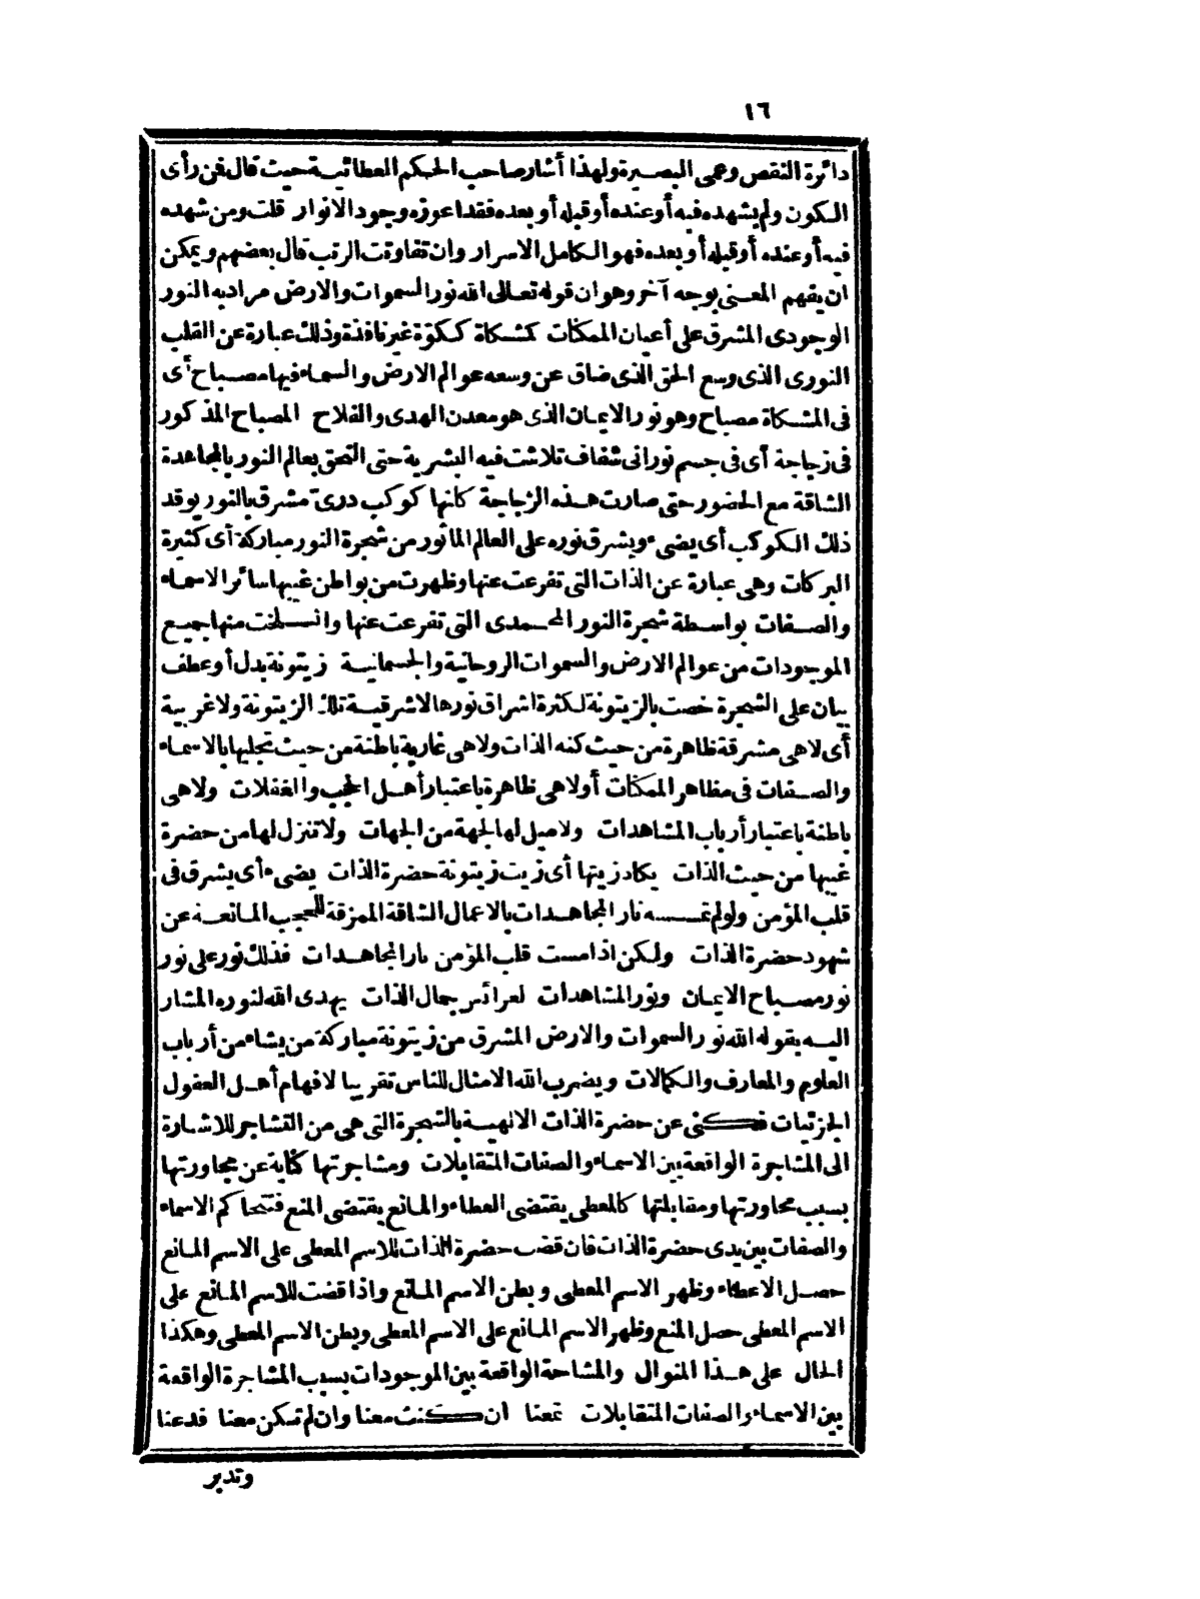 ١٦
دائرة النقص وعمى البصيرة ولهذا أشار صاحب الحكم العطائية حيث قال فمن رأى
الكون ولم يشهده فيه أو عنده أو قبله أو بعده فقد اعوزه وجود الانوار قلت ومن شهده
فيه أو عنده أو قبله أو بعده فهو الكامل الاسرار وان تفاوتت الرتب قال بعضهم ويمكن
ان يفهم المعنى بوجه آخر وهو ان قوله تعالى الله نور السموات والارض مراد به النور
الوجودى المشرق على أعيان الممكنات كمشكاة ككوّة غير نافذة وذلك عبارة عن القلب
النورى الذى وسع الحق الذى ضاق عن وسعه عوالم الارض والسماء فيها مصباح أى
فى المشكاة مصباح وهو نور الايمان الذى هو معدن الهدى والفلاح المصباح المذكور
فى زجاجة أى فى جسم نورانى شفاف تلاشت فيه البشرية حتى التحق بعالم النور بالمجاهدة
الشاقة مع الحضور حتى صارت هذه الزجاجة كانها كوكب درىّ مشرق بالنور يوقد
ذلك الكوكب أى يضىء ويشرق نوره على العالم المأثور من شجرة النور مباركة أى كثيرة
البركات وهى عبارة عن الذات التى تفرعت عنها وظهرت من بواطن غيبها سائر الاسماء
والصفات بواسطة شجرة النور المحمدى التى تفرعت عنها وانسلخت منها جميع
الموجودات من عوالم الارض والسموات الروحانية والجسمانية زيتونة بدل أو عطف
بيان على الشجرة خصت بالزيتونة لكثرة اشراق نورها لا شرقية تلك الزيتونة ولا غربية
أى لا هى مشرقة ظاهرة من حيث كنه الذات ولا هى غاربة باطنة من حيث تجليها بالاسماء
والصفات فى مظاهر الممكنات أو لا هى ظاهرة باعتبار أهل الحجب والغفلات ولا هى
باطنة باعتبار أرباب المشاهدات ولا ميل لها لجهة من الجهات ولا تنزل لها من حضرة
غيبها من حيث الذات يكاد زيتها أى زيت زيتونة حضرة الذات يضىء أى يشرق فى
قلب المؤمن ولو لم تمسسه نار المجاهدات بالاعمال الشاقة الممزقة للحجب المانعة عن
شهود حضرة الذات ولكن اذا مست قلب المؤمن نار المجاهدات فذلك نور على نور
نور مصباح الايمان ونور المشاهدات لعرائس جمال الذات يهدى الله لنوره المشار
اليه بقوله الله نور السموات والارض المشرق من زيتونة مباركة من يشاء من أرباب
العلوم والمعارف والكمالات ويضرب الله الامثال للناس تقريبا لافهام أهل العقول
الجزئيات فكنى عن حضرة الذات الالهية بالشجرة التى هى من التشاجر للاشارة
الى المشاجرة الواقعة بين الاسماء والصفات المتقابلات ومشاجرتها كناية عن مجاورتها
بسبب محاورتها ومقابلتها كالمعطى يقتضى العطاء والمانع يقتضى المنع فتتحاكم الاسماء
والصفات بين يدى حضرة الذات فان قضت حضرة الذات للاسم المعطى على الاسم المانع
حصل الاعطاء وظهر الاسم المعطى وبطن الاسم المانع واذا قضت للاسم المانع على
الاسم المعطى حصل المنع وظهر الاسم المانع على الاسم المعطى وبطن الاسم المعطى وهكذا
الحال على هذا المنوال والمشاحة الواقعة بين الموجودات بسبب المشاجرة الواقعة
بين الاسماء والصفات المتقابلات تمعنا ان كنت معنا وان لم تكن معنا فدعنا
وتدبر